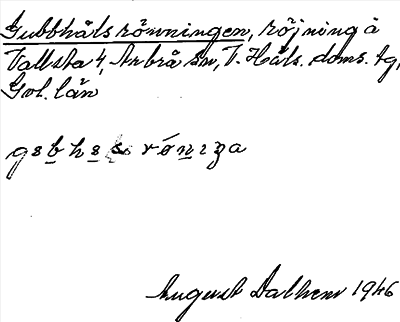 Gubbhålsrönningen, röjning å
Vallsta 4, Arbrå sn, V. Häls. doms. tg,
Gvl. län
August Dalhem 1946